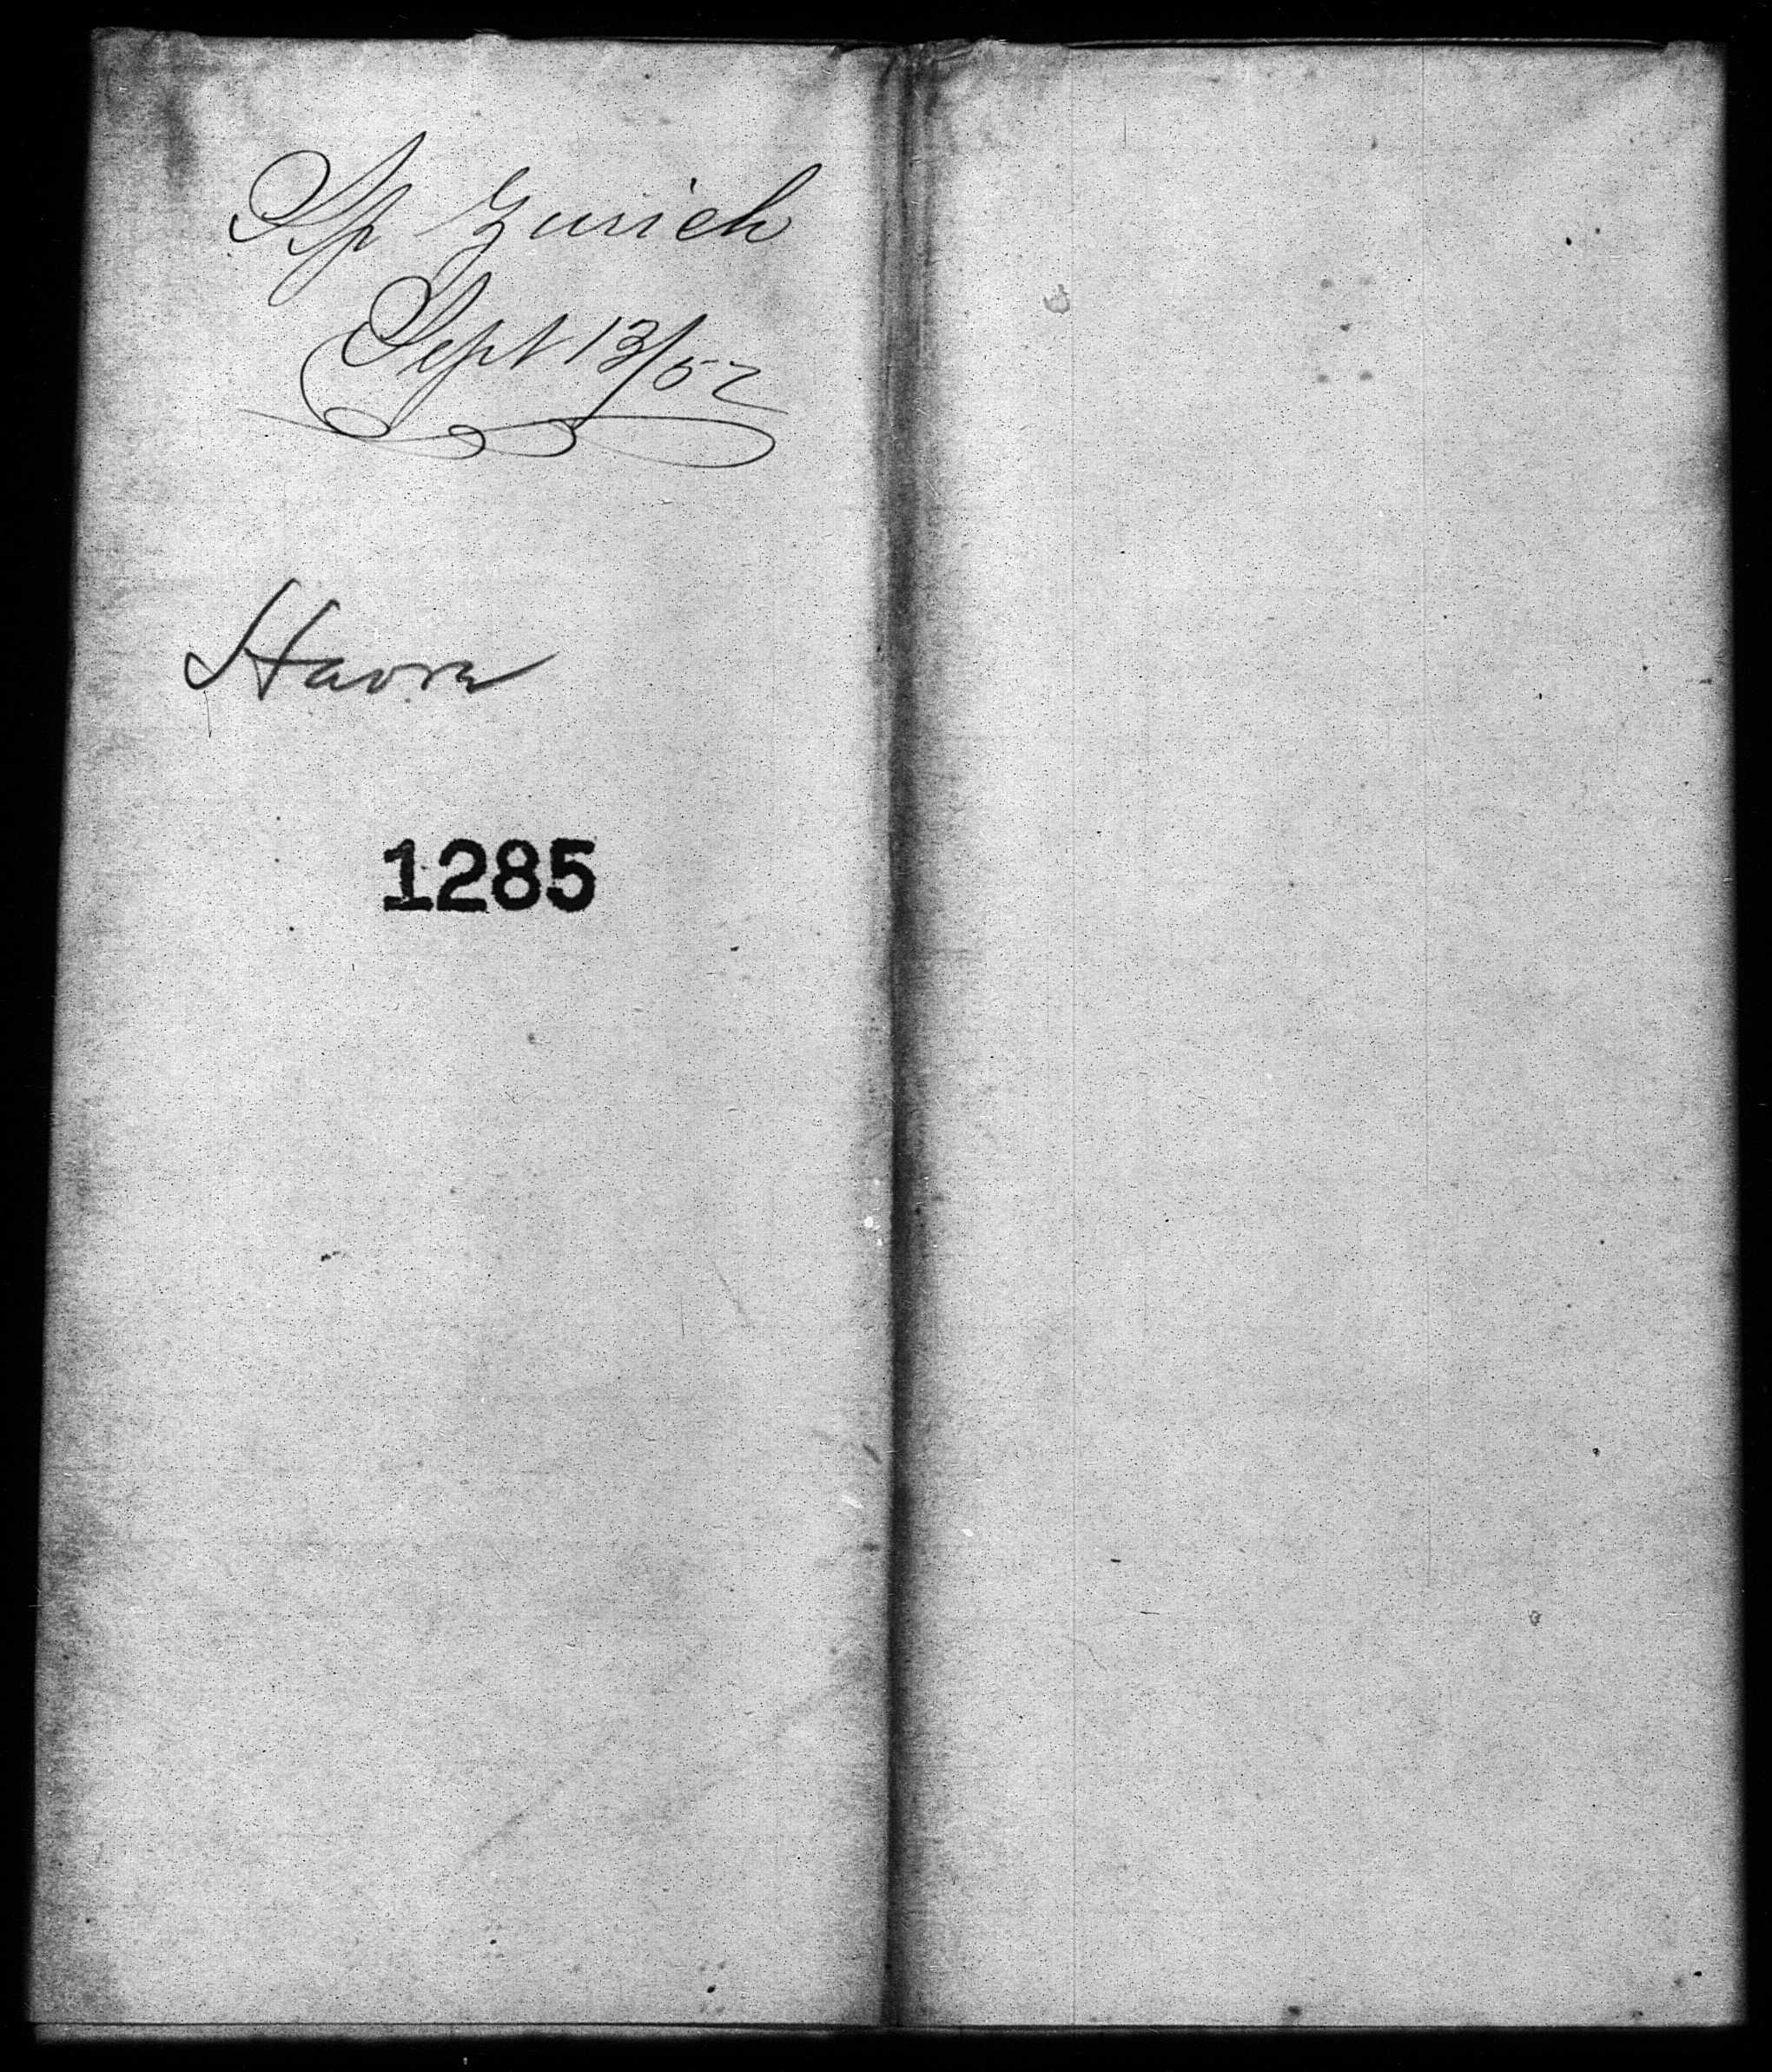 Sp Zurich
Sept 13/52
Havre
1285